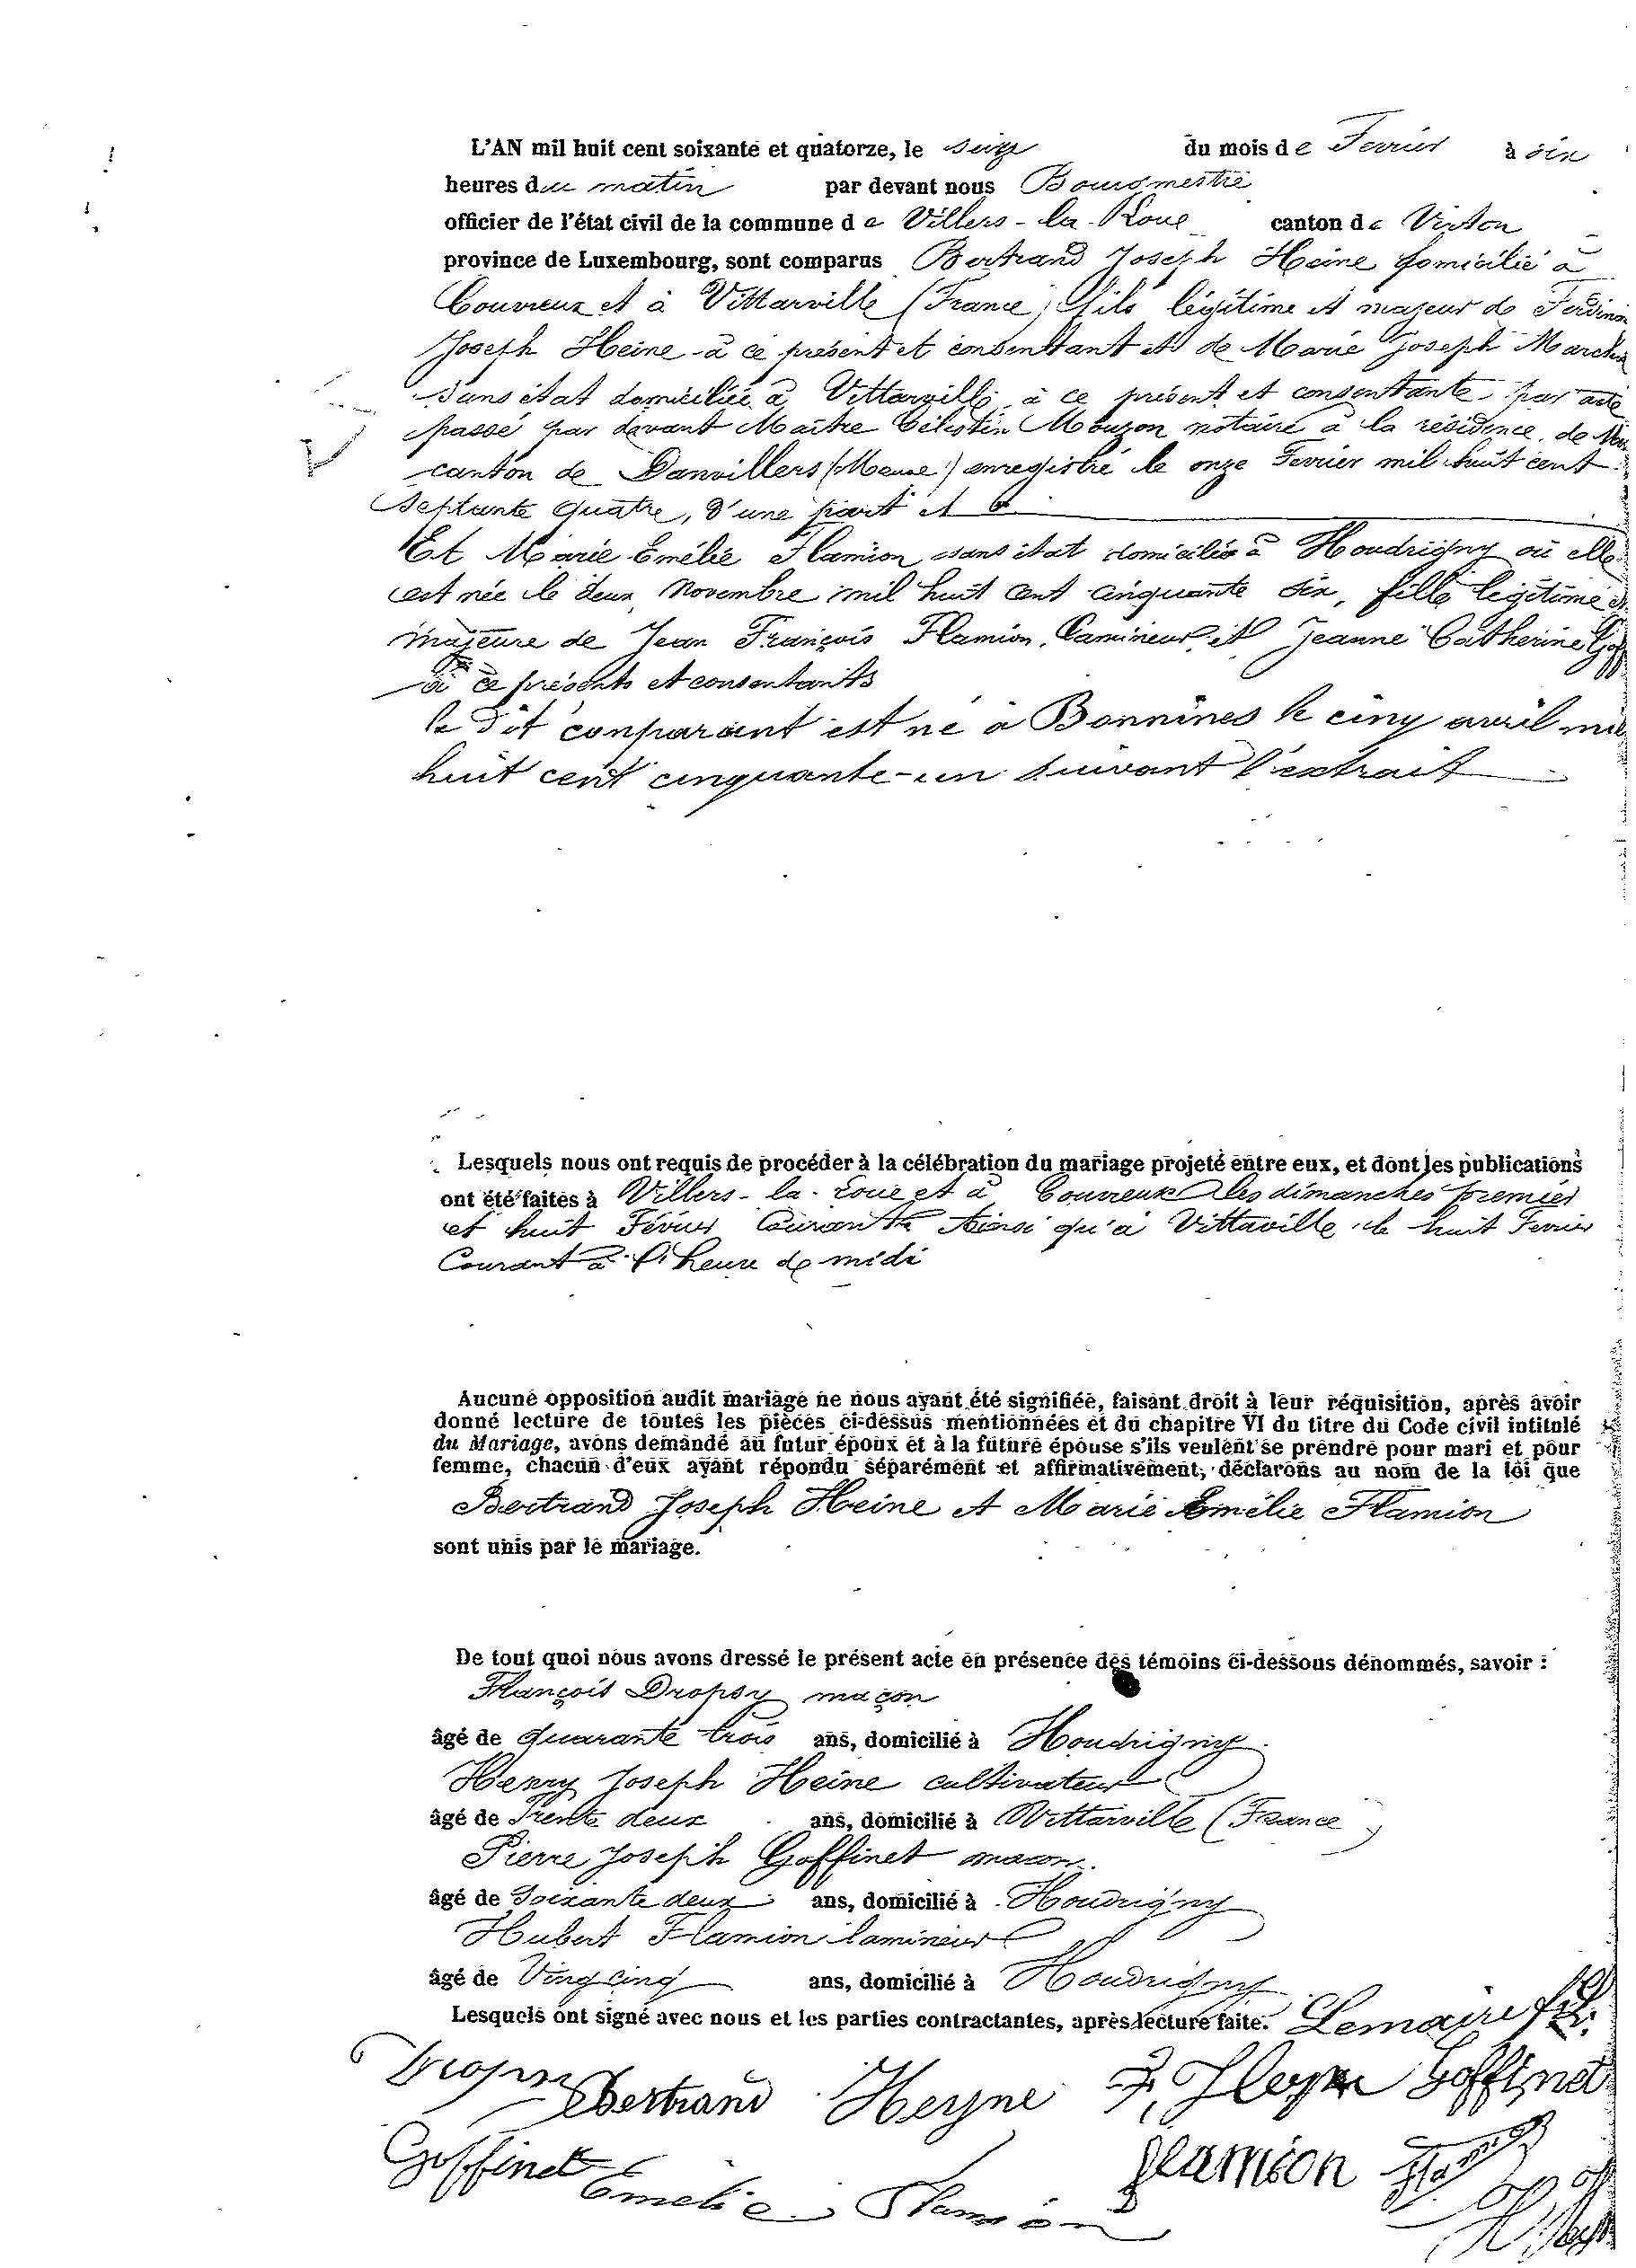 L'AN mil huit cent soixante et quatorze, le seize du mois de Fevrier à six
heures du matin par devant nous Bourgmestre
officier de l'état civil de la commune de Villers-la-Loue canton de Virton
province de Luxembourg, sont comparus Bertrand Joseph Heine domicilié à
Couvreux et à Vittarville (France) fils légitime et majeur de Ferdinan
Joseph Heine à ce présent et consentant et de Marie Joseph Marcha
sans état domiciliée à Vittarville à ce présent et consentante par acte
passé par devant Maître Célestin Mouzon notaire à la résidence de
canton de Damvillers (Meuse) enregistré le onze Fevrier mil huit cent
septante quatre, d'une part et
Et Marie Emélie Flamion sans état domiciliée à Houdrigny où elle
est née le deux Novembre mil huit cent cinquante six, fille légitime et
majeure de Jean François Flamion, Lamineur et Jeanne Catherine Goff
à ce présents et consentants
le dit comparant est né à Bonnines le cinq avril mil
huit cent cinquante-un suivant l'extrait
Lesquels nous ont requis de procéder à la célébration du mariage projeté entre eux, et dont les publications
ont été faites à Villers-la-Loue et à Couvreux les dimanches premier
et huit Février Courant ainsi qu'à Vittaville le huit Fevrier
Courant à l'heure de midi
Aucune opposition audit mariage ne nous ayant été signifiée, faisant droit à leur réquisition, après avoir
donné lecture de toutes les pièces ci-dessus mentionnées et du chapitre VI du titre du Code civil intitulé
du Mariage, avons demandé au futur époux et à la future épouse s'ils veulent se prendre pour mari et pour
femme, chacun d'eux ayant répondu séparément et affirmativement, déclarons au nom de la loi que
Bertrand Joseph Heine et Marie Emélie Flamion
sont unis par le mariage.
De tout quoi nous avons dressé le présent acte en présence des témoins ci-dessous dénommés, savoir :
François Dropsy maçon
âgé de quarante trois ans, domicilié à Houdrigny
Henry Joseph Heine cultivateur
âgé de Trente deux ans, domicilié à Vittarville (France)
Pierre Joseph Goffinet macon
âgé de Soixante deux ans, domicilié à Houdrigny
Hubert Flamion lamineur
âgé de Vingcinq ans, domicilié à Houdrigny
Lesquels ont signé avec nous et les parties contractantes, après lecture faite. Lemaire
Bertrand Heyne Goffinet
Goffinet Emelie Flamion Flamion